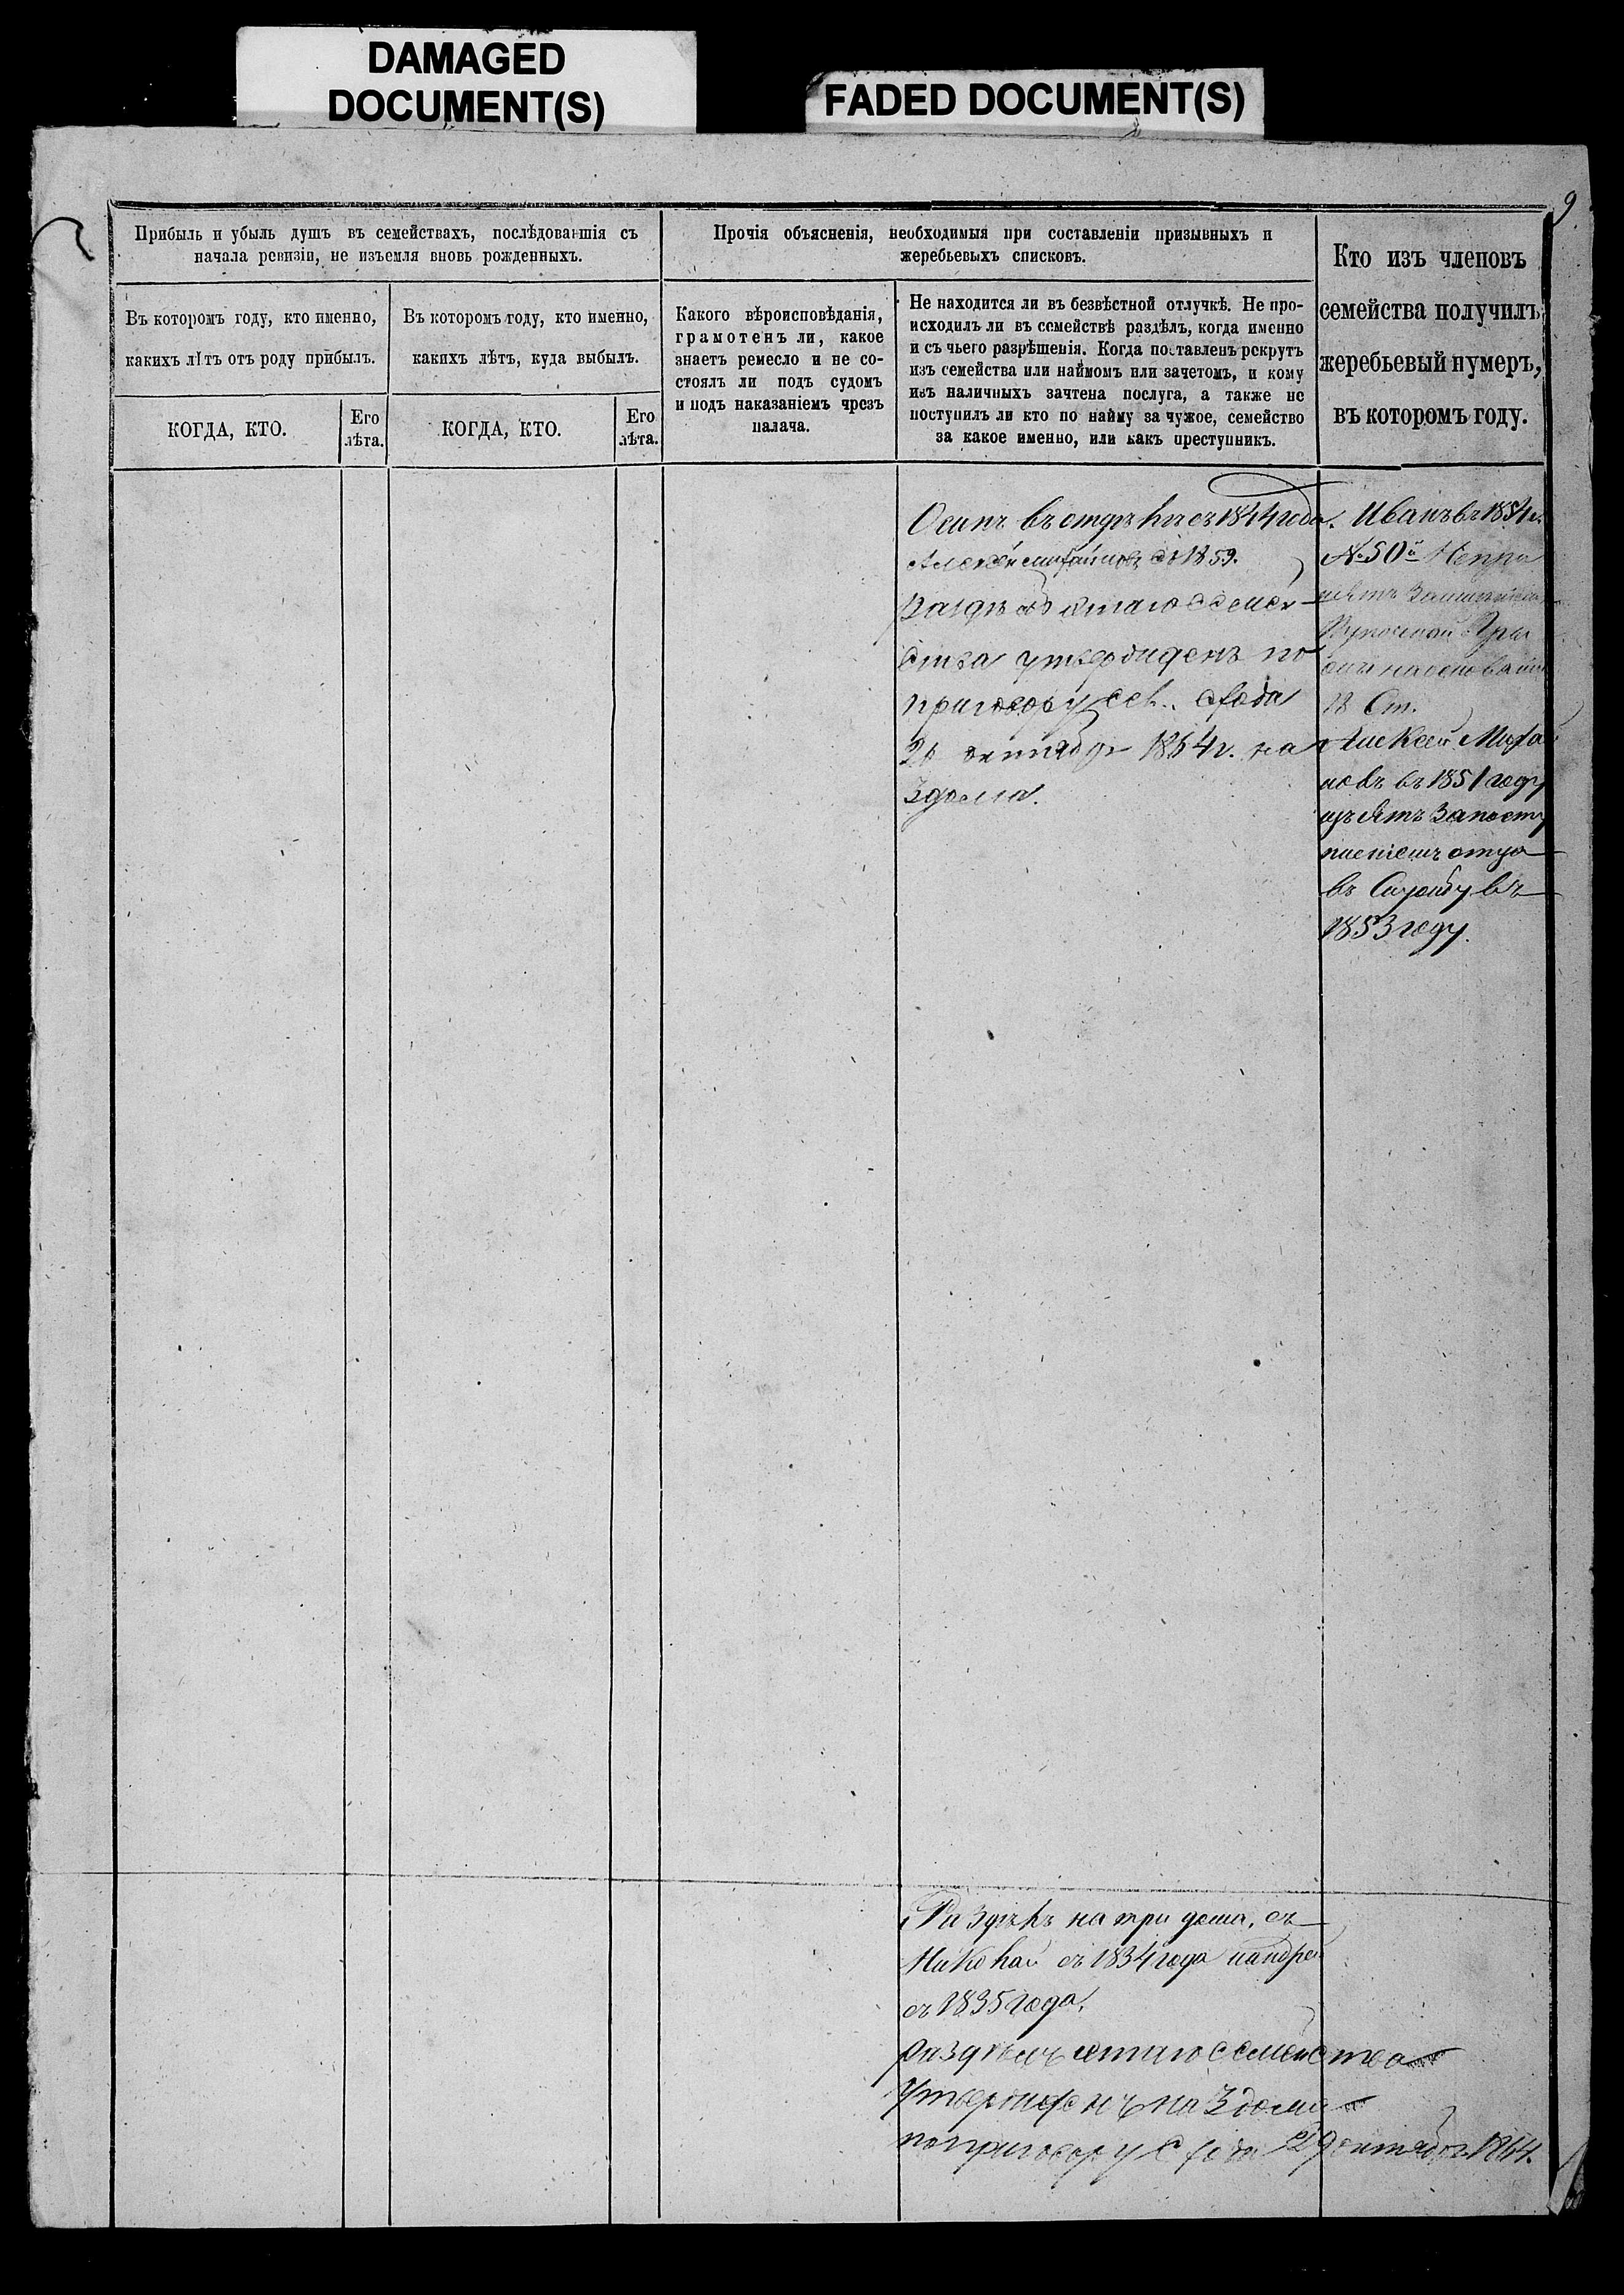 DAMAGED
DOCUMENT(S)
FADED DOCUMENT(S)
9
Прибыль и убыль душъ въ семействахъ, послѣдовавшія съ
начала ревизіи, не изъемля вновь рожденныхъ.
Въ которомъ году, кто именно,
какихъ лѣтъ отъ роду прибылъ.
КОГДА, КТО.
Его
лѣта.
Въ которомъ году, кто именно,
какихъ лѣтъ, куда выбылъ.
КОГДА, КТО.
Его
лѣта.
Прочія объясненія, необходимыя при составленіи призывныхъ и
жеребьевыхъ списковъ.
Какого вѣроисповѣданія,
грамотенъ ли, какое
знаетъ ремесло и не со-
стоялъ ли подъ судомъ
и подъ наказаніемъ чрезъ
палача.
Не находится ли въ безвѣстной отлучкѣ. Не про-
исходилъ ли въ семействѣ раздѣлъ, когда именно
и съ чьего разрѣшенія. Когда поставленъ рекрутъ
изъ семейства или наймомъ или зачетомъ, и кому
изъ наличныхъ зачтена послуга, а также не
поступилъ ли кто по найму за чужое, семейство
за какое именно, или какъ преступникъ.
Кто изъ членовъ
семейства получилъ
жеребьевый нумеръ,
въ которомъ году.
Осипъ въ отдѣлѣ съ 1844 года.
Алексѣй Михайловъ съ 1859.
Раздѣлъ этаго семей-
ства утвержденъ по
приговору сел. схода
октября 1864 г. на
3 дома.
Иванъ въ 1854 г.
№ 50й Непри
нятъ
на основаніи
18 Ст.
Алексей Михай
ловъ въ 1851 году
изъятъ за посту
пленіемъ отца
въ Службу въ
1853 году.
Раздѣлъ на три дома, съ
Николай съ 1834 года Андрей
съ 1835 года.
раздѣлъ этаго семейства
Утвержденъ на 3 дома
по приговору Схода 29 октября 1864.